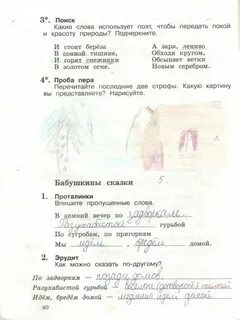 3*. Поиск
Какие слова использует поэт, чтобы передать покой
и красоту природы? Подчеркните.
И стоит берёза
В сонной тишине,
И горят снежинки
В золотом огне.
А заря, лениво
Обходя кругом,
Обсыпает ветки
Новым серебром.
4*. Проба пера
Перечитайте последние две строфы. Какую картину
вы представляете? Нарисуйте.
Бабушкины сказки
5
1. Проталинки
Впишите пропущенные слова.
В зимний вечер по задворкам
Разухабистой гурьбой
По сугробам, по пригоркам
Мы идём, бредём домой.
2. Эрудит
Как можно сказать по-другому?
По задворкам – позади домов.
Разухабистой гурьбой – весёлой (задорной) толпой
Идём, бредём домой – медленно идём домой.
40